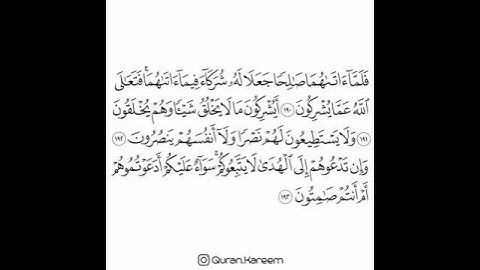 فَلَمَّآ ءَاتَىٰهُمَا صَٰلِحًا جَعَلَا لَهُۥ شُرَكَآءَ فِيمَآ ءَاتَىٰهُمَا ۚ فَتَعَٰلَى
ٱللَّهُ عَمَّا يُشْرِكُونَ ١٩٠ أَيُشْرِكُونَ مَا لَا يَخْلُقُ شَيْـًٔا وَهُمْ يُخْلَقُونَ
١٩١ وَلَا يَسْتَطِيعُونَ لَهُمْ نَصْرًا وَلَآ أَنفُسَهُمْ يَنصُرُونَ ١٩٢
وَإِن تَدْعُوهُمْ إِلَى ٱلْهُدَىٰ لَا يَتَّبِعُوكُمْ ۚ سَوَآءٌ عَلَيْكُمْ أَدَعَوْتُمُوهُمْ
أَمْ أَنتُمْ صَٰمِتُونَ ١٩٣
Quran.Kareem